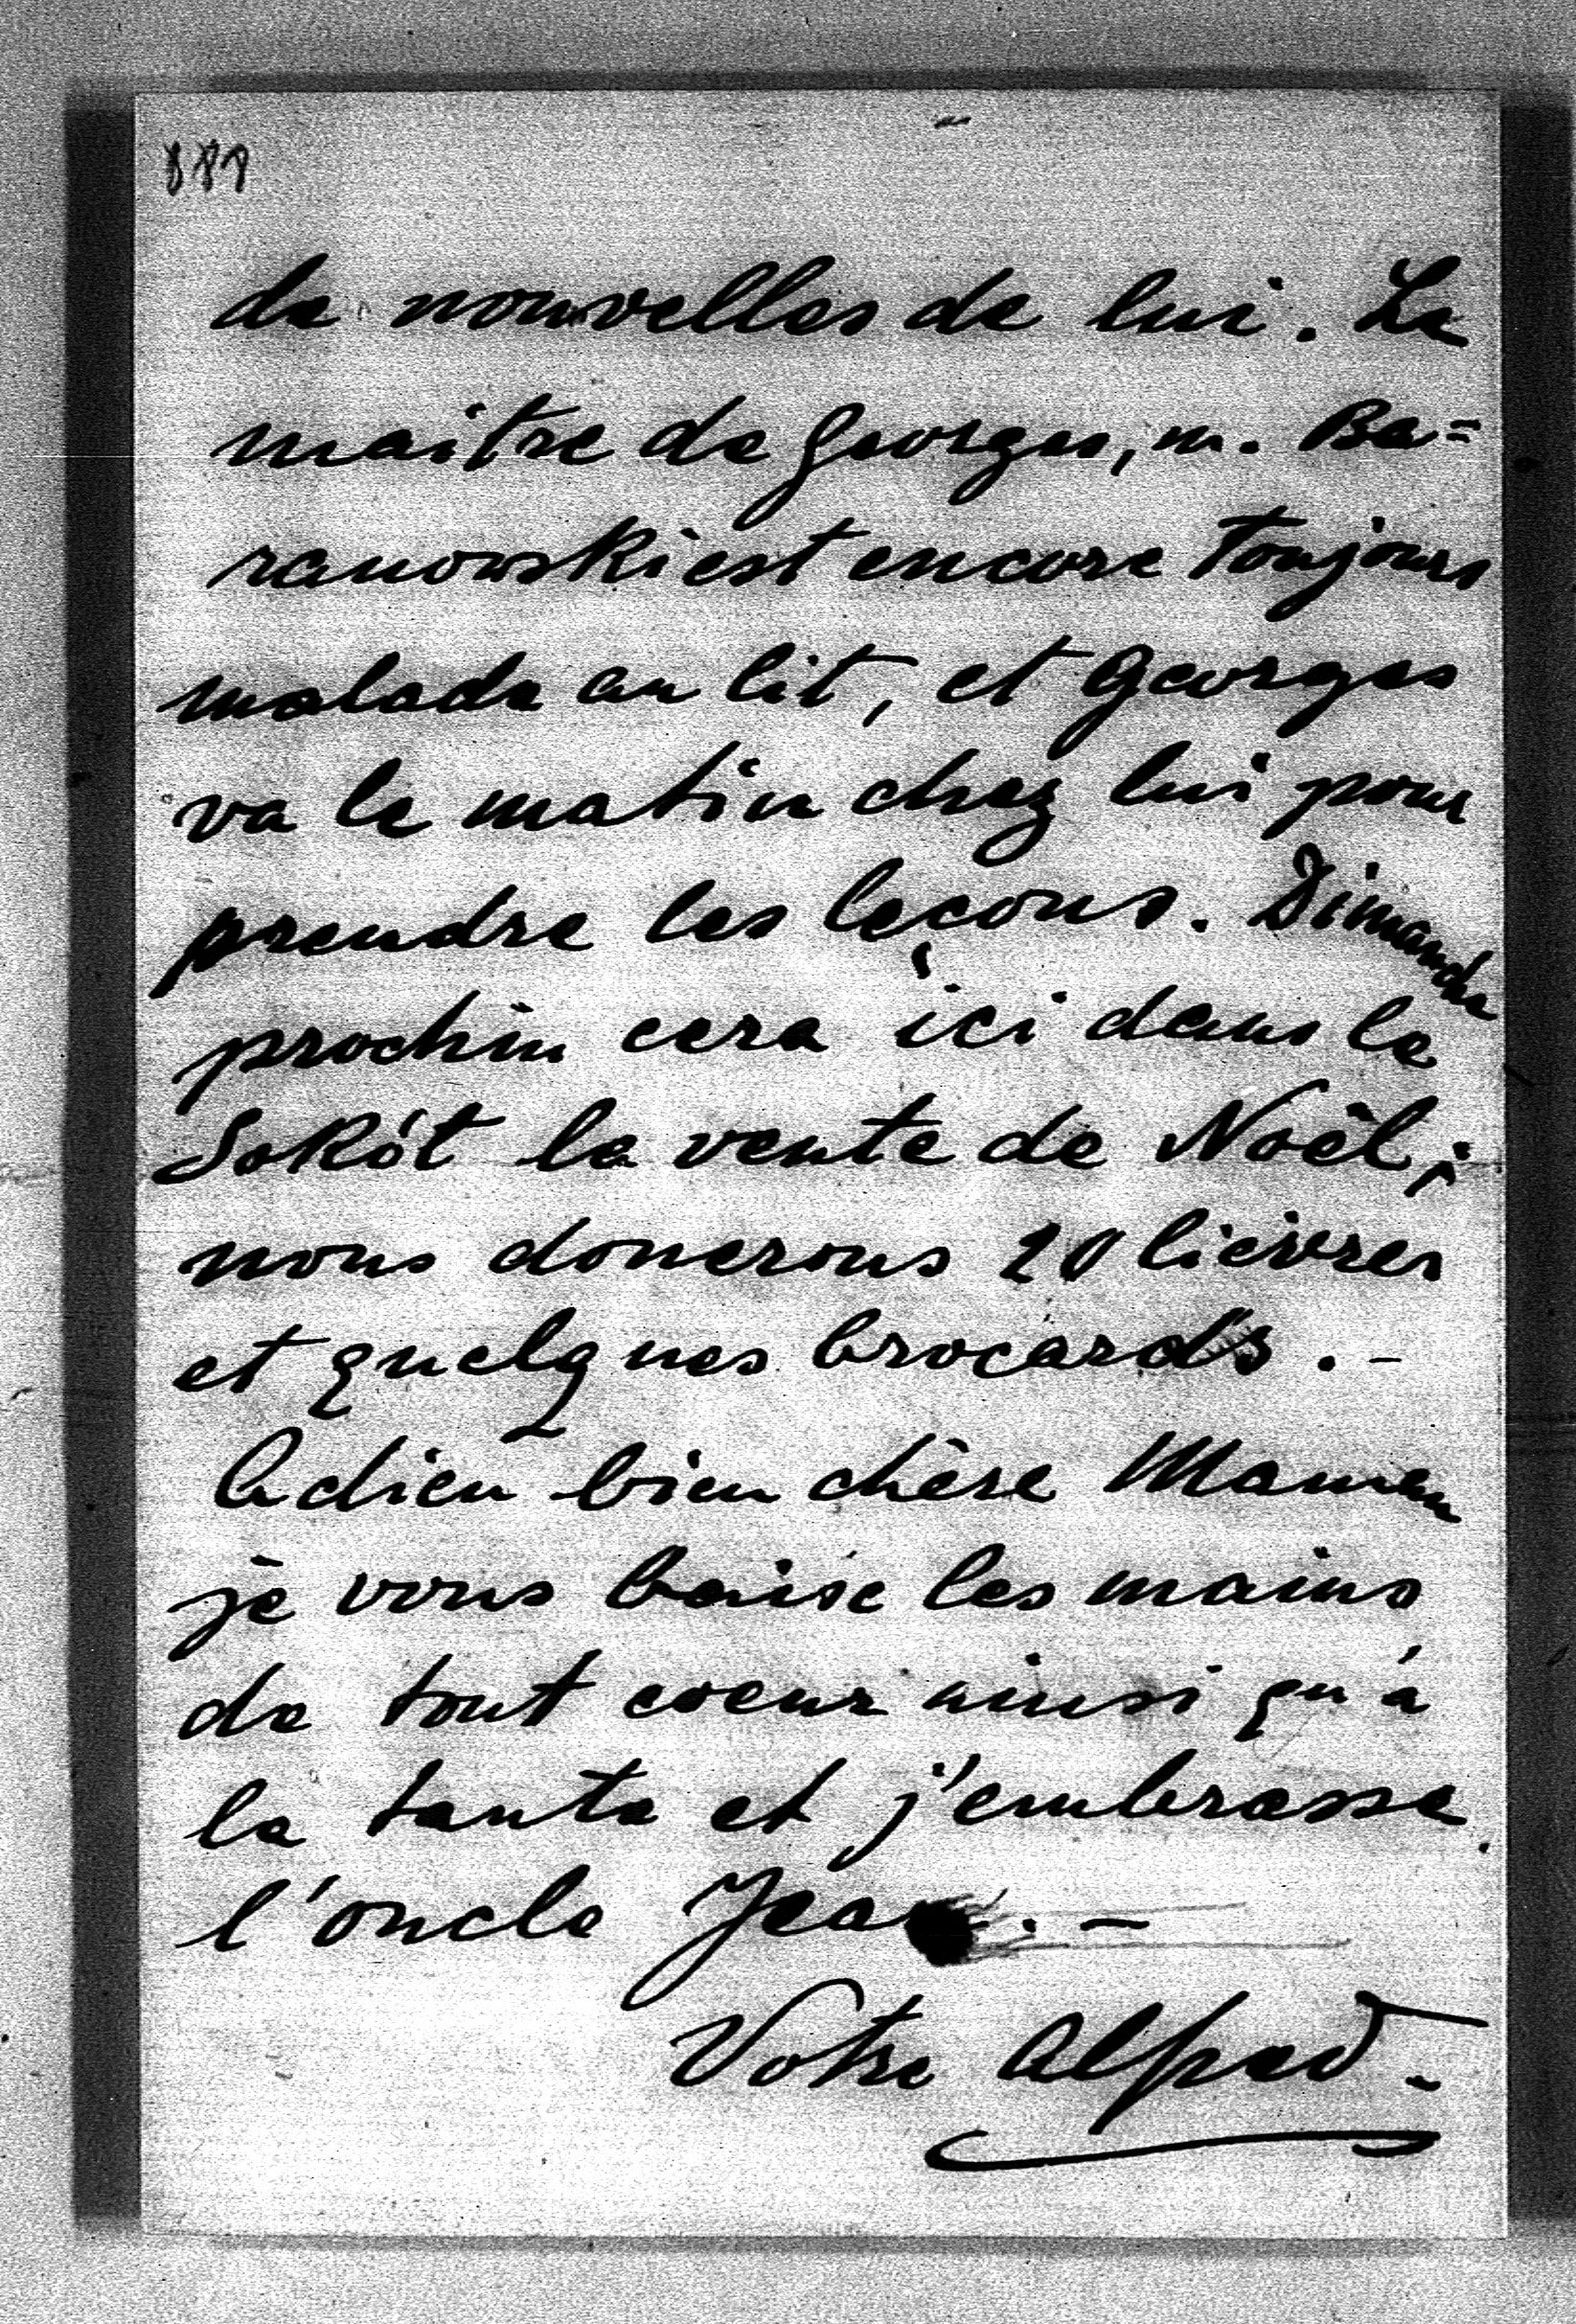 888
de nouvelles de lui. Le
maitre de Georges, m. Ba=
ranowski est encore toujours
malade au lit, et Georges
va le matin chez lui pour
prendre les leçons. Dimanche
prochin cera ici dans le
Sokół la vente de Noël;
nous donerons 20 lièvres
et quelques brocards. -
Adieu bien chère Maman
je vous baise les mains
de tout coeur ainsi qu'á
la tante et j'embrasse
l'oncle Jean. -
Votre Alfred -